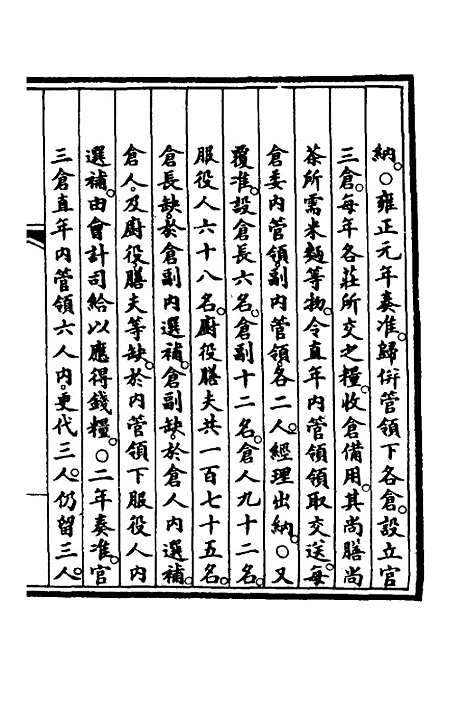 納。○雍正元年奏准。歸併管領下各倉。設立官
三倉。每年各莊所交之糧。收倉備用。其尚膳尚
茶所需米麵等物。令直年内管領領取交送。每
倉委内管領。副内管領各二人。經理出納。○又
覆准。設倉長六名。倉副十二名。倉人九十二名。
服役人六十八名。廚役膳夫共一百七十五名。
倉長缺。於倉副内選補。倉副缺。於倉人内選補。
倉人。及廚役膳夫等缺。於内管領下服役人内
選補。由會計司給以應得錢糧。○二年奏准。官
三倉直年内管領六人内。更代三人。仍留三人。